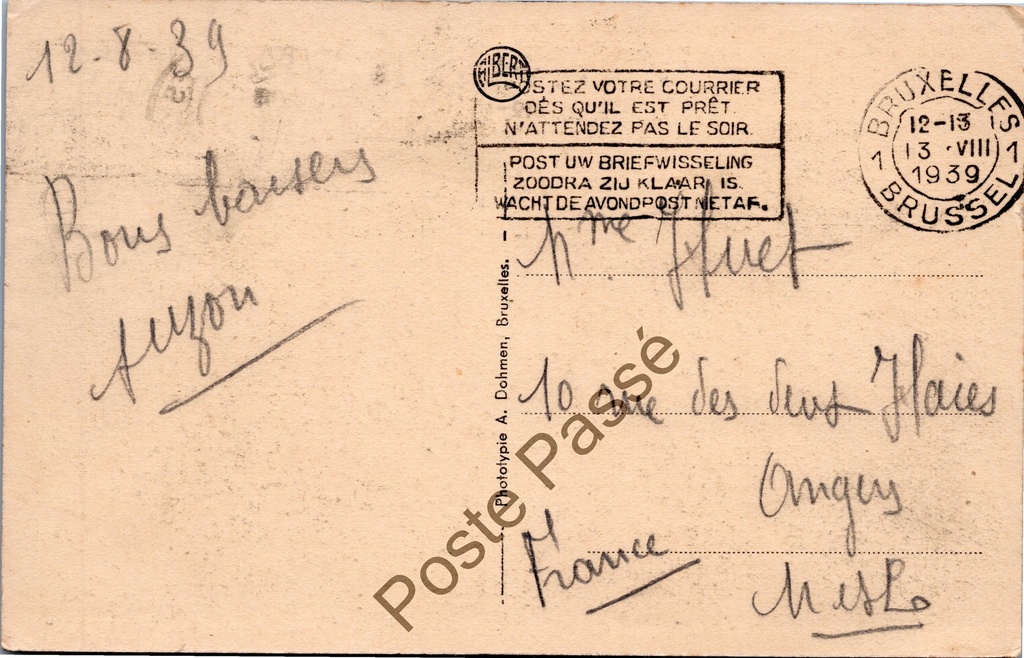 12-8-39
Bons baisers
ALBERT
POSTEZ VOTRE COURRIER
DÈS QU'IL EST PRÊT.
N'ATTENDEZ PAS LE SOIR.
POST UW BRIEFWISSELING
ZOODRA ZIJ KLAAR IS.
WACHT DE AVONDPOST NIET AF.
BRUXELLES
12-13
1 13 VIII 1
1939
BRUSSEL
Mme Huet
10 rue des deux Haies
Angers
France
M et L
Phototypie A. Dohmen, Bruxelles.
Poste Passé